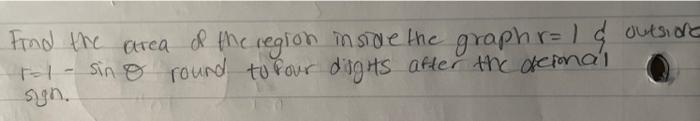 Find the area of the region inside the graph r= 1 & outside
r=1 - sin θ round to four digits after the decimal
sign.